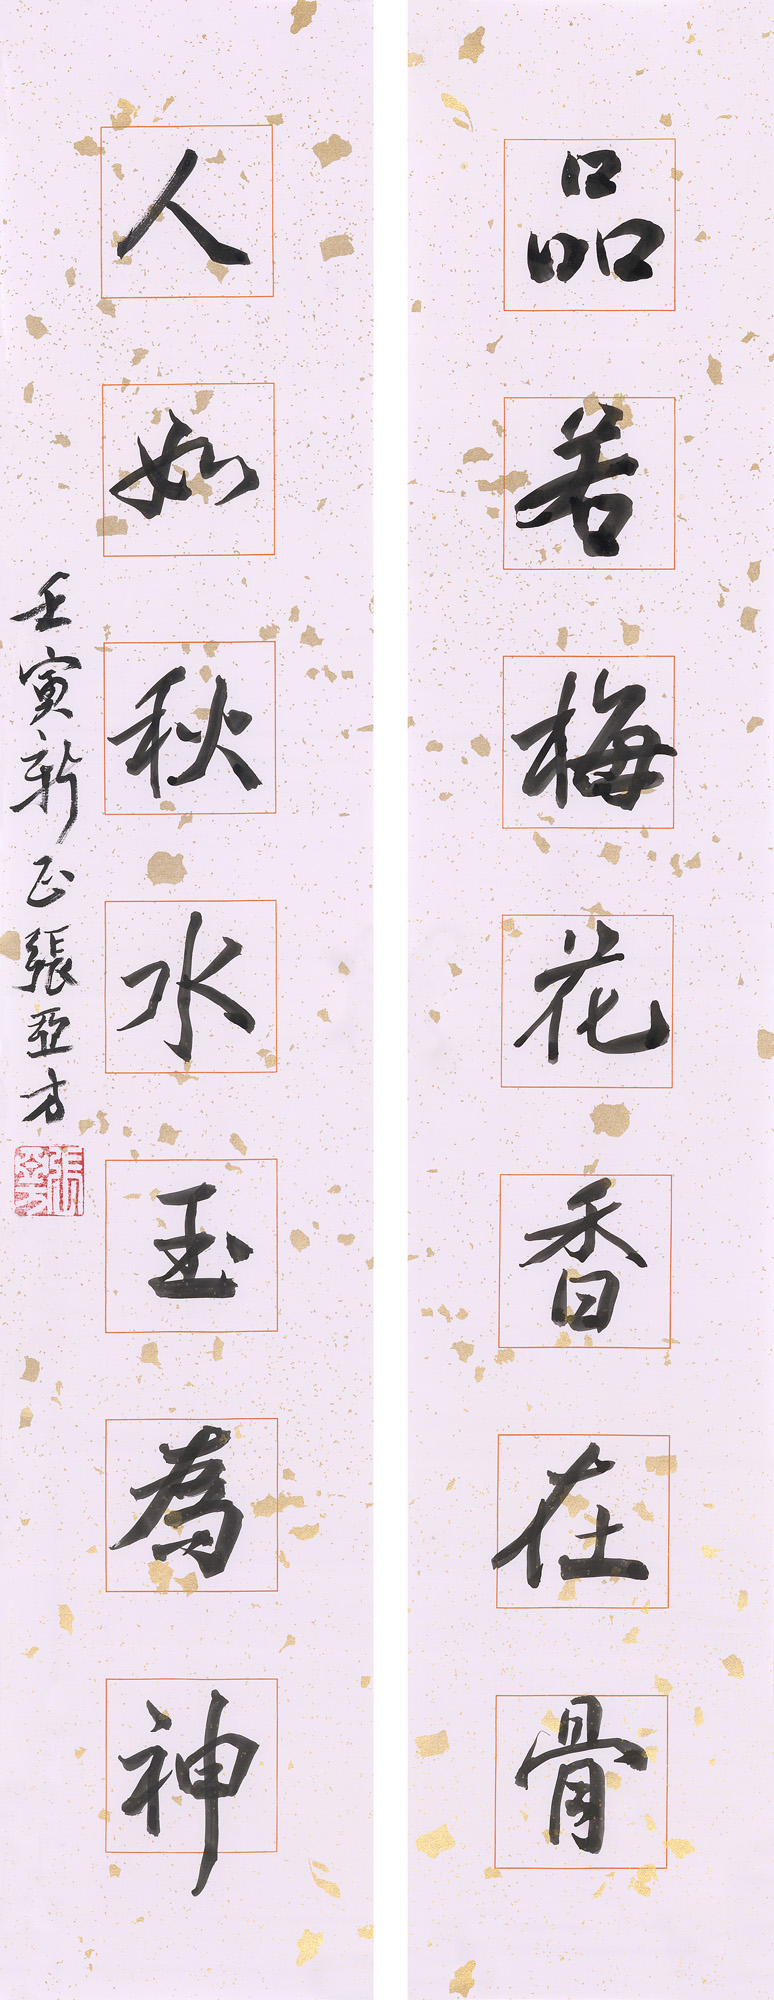 品若梅花香在骨
人如秋水玉為神
壬寅新正張亞方